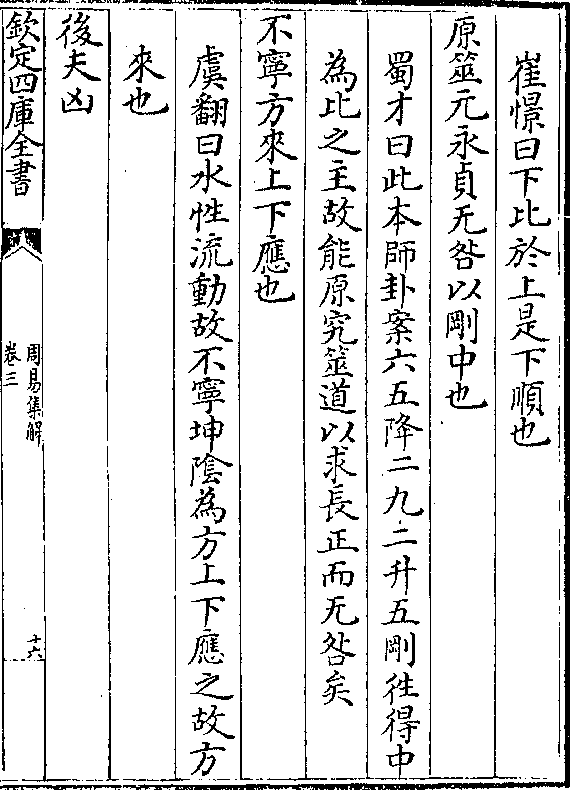 崔憬曰下比於上是下順也
原筮元永貞无咎以剛中也
蜀才曰此本師卦案六五降二九二升五剛徃得中
為比之主故能原究筮道以求長正而无咎矣
不寧方來上下應也
虞翻曰水性流動故不寧坤陰為方上下應之故方
來也
後夫凶
欽定四庫全書
周易集解
卷三
十六